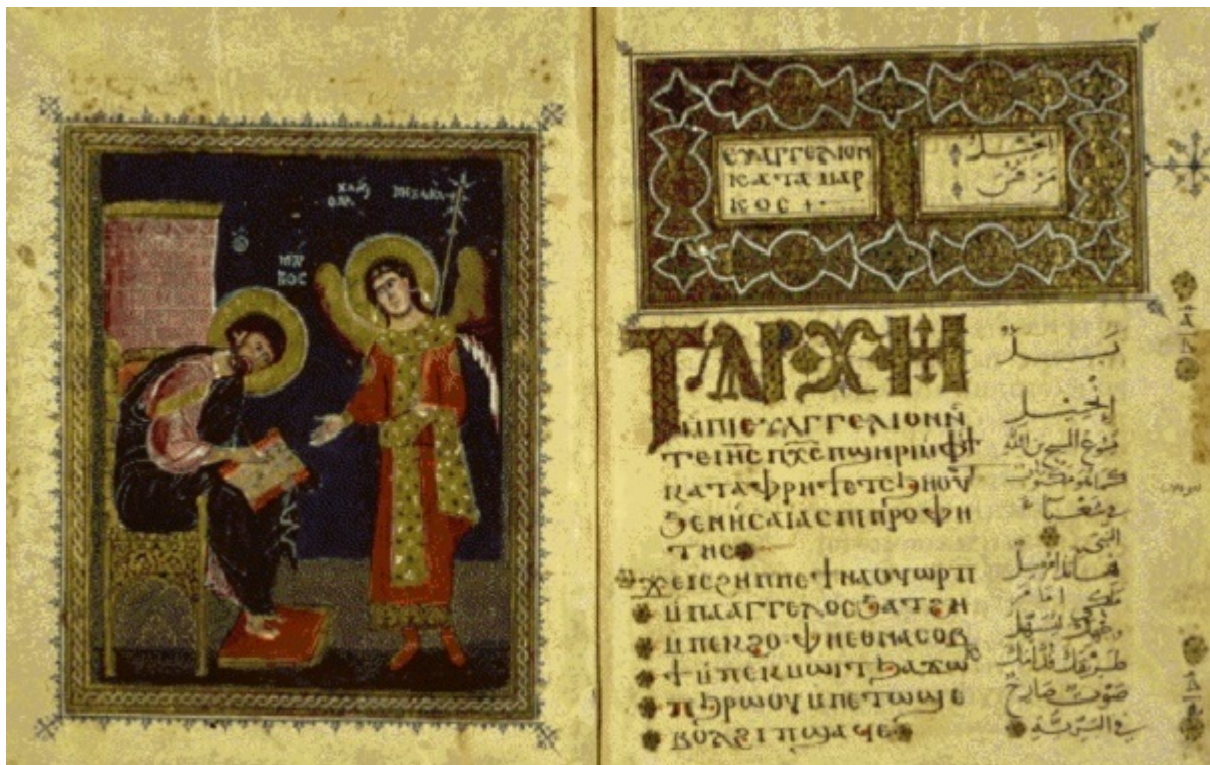 ⲙⲁⲣ
ⲕⲟⲥ
ⲉⲩⲁⲅⲅⲉⲗⲓⲟⲛ
ⲕⲁⲧⲁ ⲙⲁⲣ
ⲕⲟⲥ +
انجيل
مرقس
ⲧⲁⲣⲭⲏ
ⲙⲡⲓⲉⲩⲁⲅⲅⲉⲗⲓⲟⲛ ⲛ̀
ⲧⲉ ⲓⲏⲥ ⲡⲭⲥ ⲡϣⲏⲣⲓ ⲙⲫϯ
ⲕⲁⲧⲁ ⲫⲣⲏϯ ⲉⲧⲥϧⲏⲟⲩⲧ
ϧⲉⲛ ⲏⲥⲁⲓⲁⲥ ⲡⲓⲡⲣⲟⲫⲏ
ⲧⲏⲥ
ϫⲉ ⲓⲥ ϩⲏⲡⲡⲉ ϯⲛⲁⲟⲩⲱⲣⲡ
ⲙⲡⲁⲁⲅⲅⲉⲗⲟⲥ ϧⲁⲧϩⲏ
ⲙⲡⲉⲕϩⲟ ⲫⲏ ⲉⲑⲛⲁⲥⲟⲃ
ϯ ⲙⲡⲉⲕⲙⲱⲓⲧ ϧⲁϫⲱⲕ
ⲡϧⲣⲱⲟⲩ ⲙⲡⲉⲧⲱϣ ⲉ
ⲃⲟⲗ ϩⲓ ⲡϣⲁϥⲉ
انجيل
يسوع المسيح ابن الله
كما هو مكتوب
في شعيا
النبي
هانذا مرسل
امام
وجهك ليسهل
طريقك قدامك
صوت صارخ
في البرية